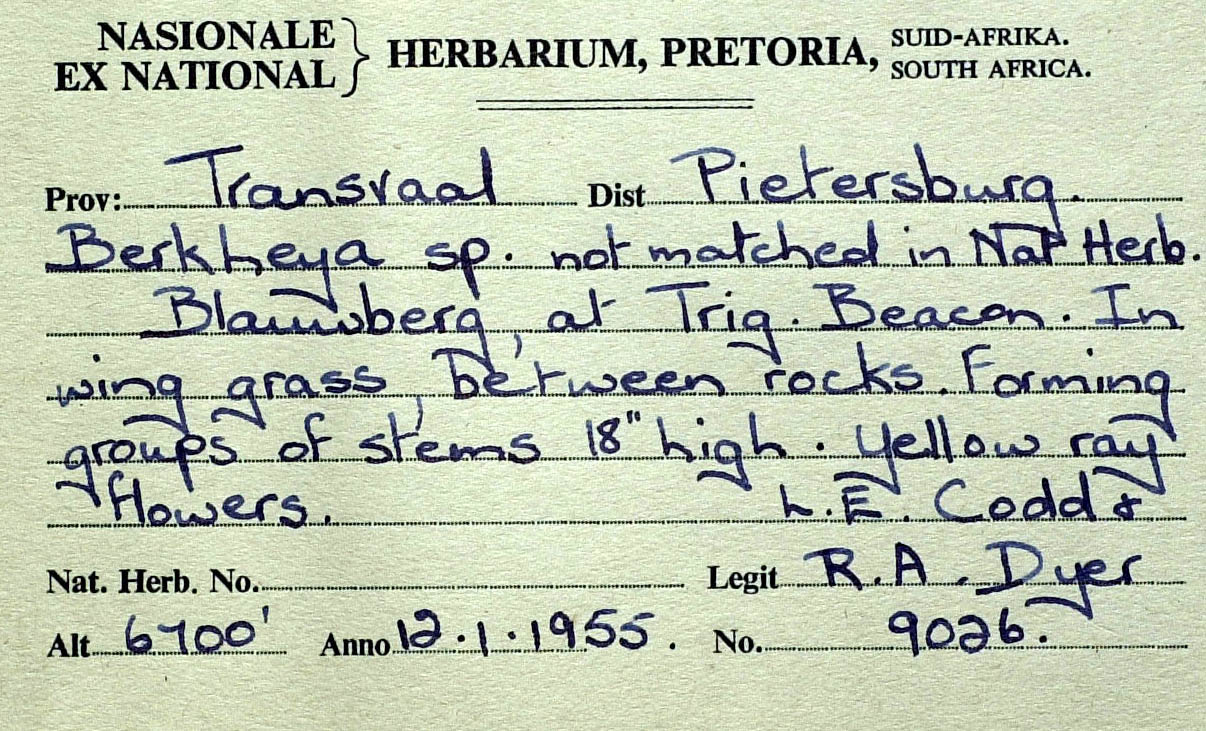 NASIONALE
EX NATIONAL } HERBARIUM, PRETORIA, SUID-AFRIKA.
SOUTH AFRICA.
Prov: Transvaal Dist Pietersburg.
Berkheya sp. not matched in Nat Herb.
Blauwberg, at Trig. Beacon. In
wing grass, between rocks. Forming
groups of stems 18" high. Yellow ray
flowers. L.E. Codd &
Nat. Herb. No. Legit R.A. Dyer
Alt 6700' Anno 12.1.1955. No. 9026.